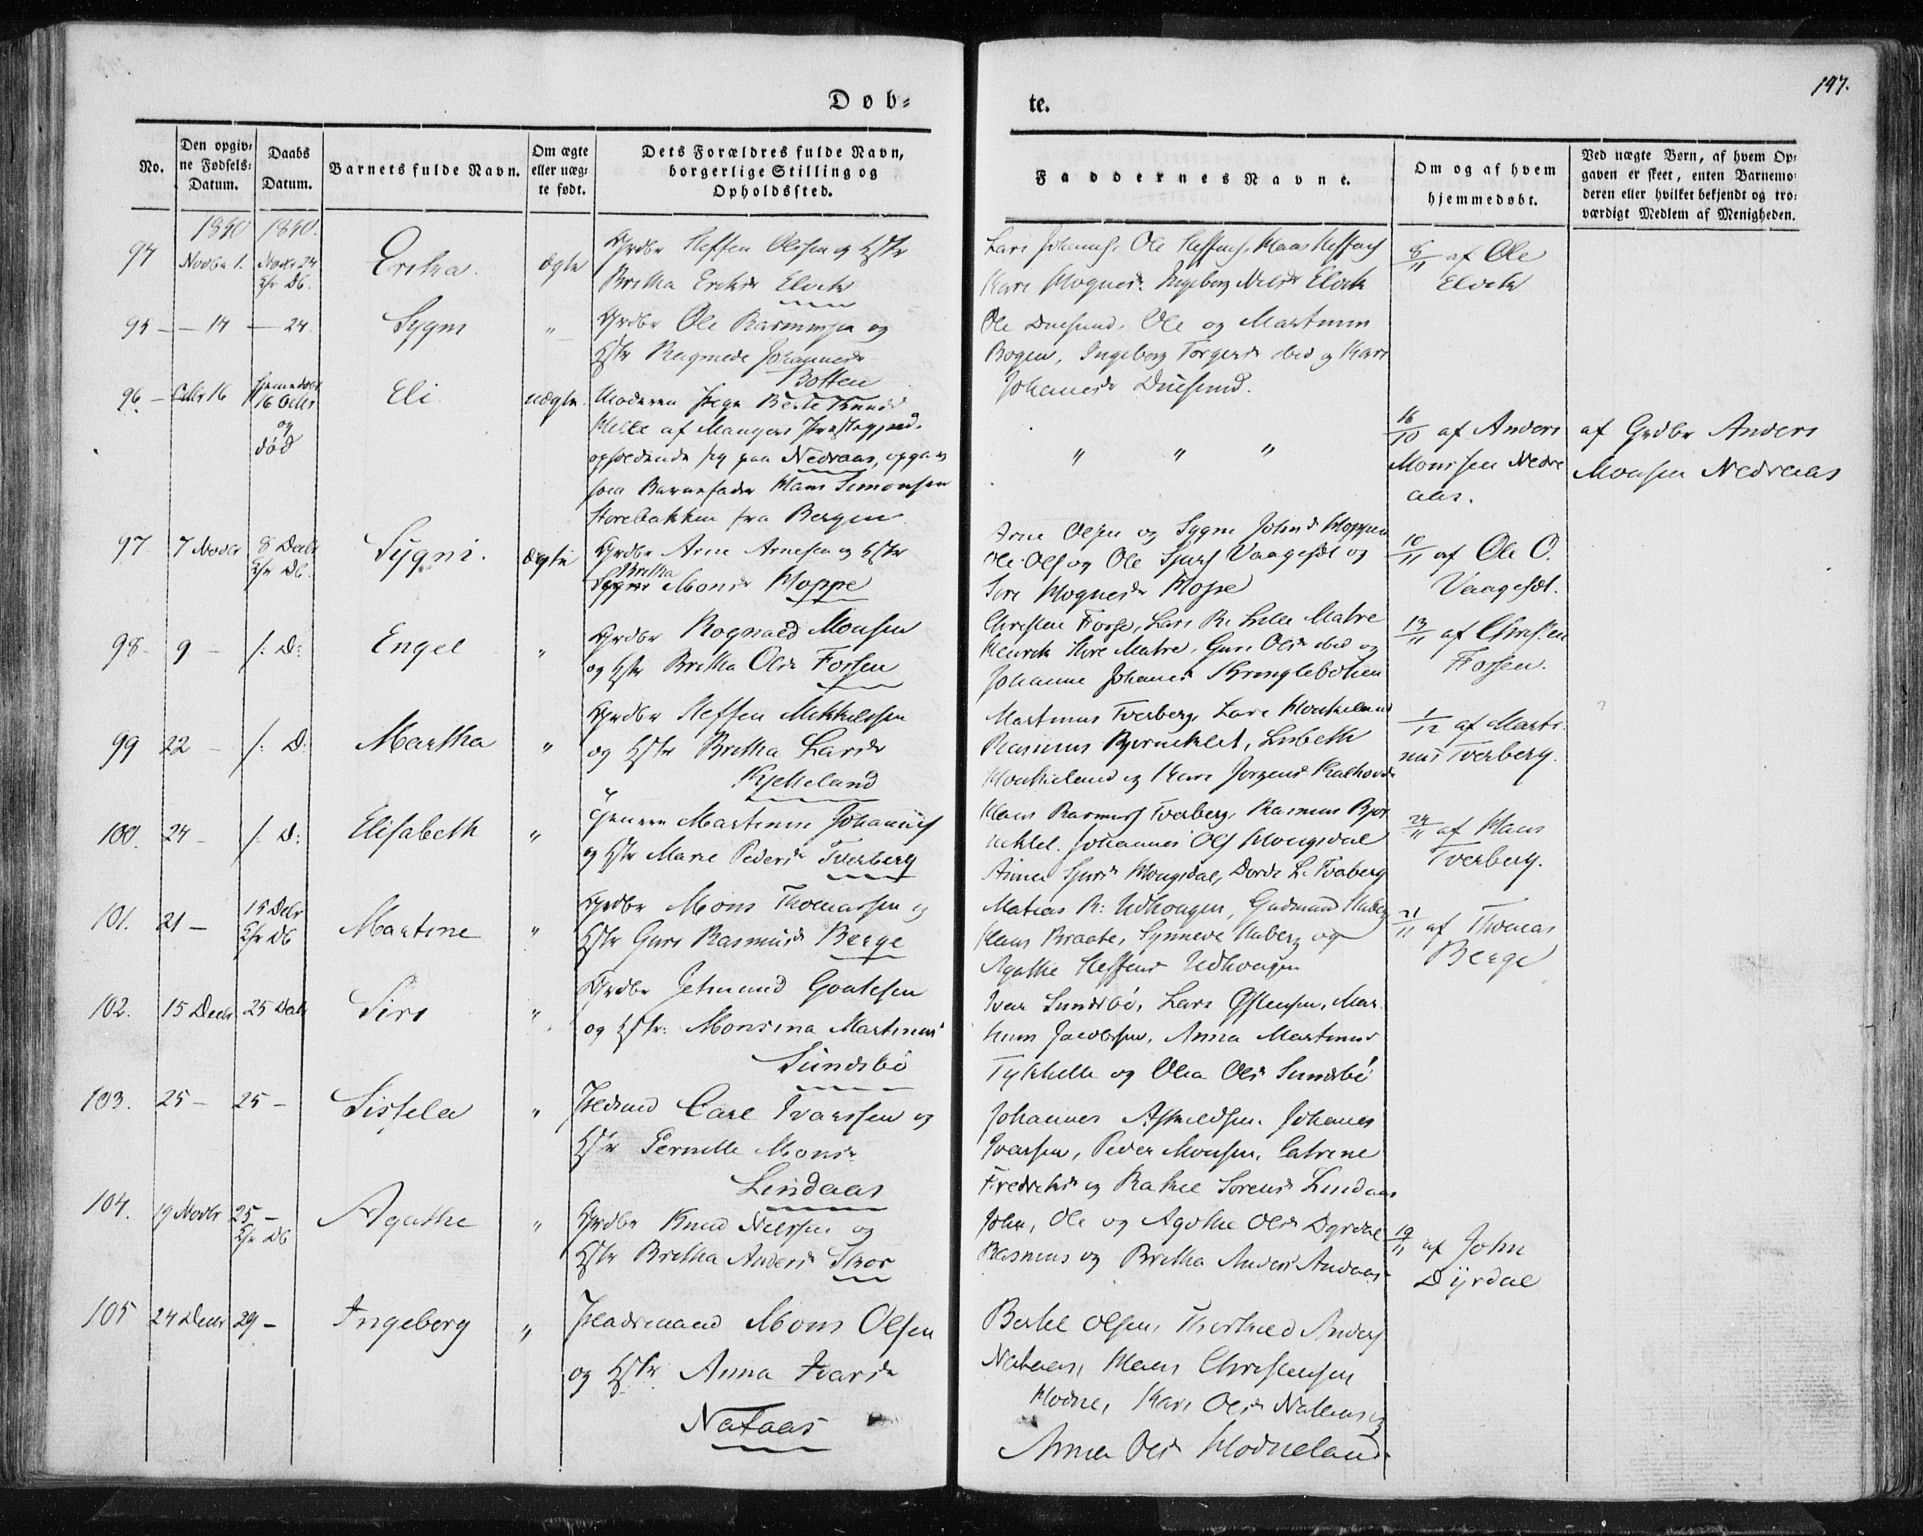 Døb-
te.
197.
No.
Den opgiv-
ne Fødsels-
Datum.
Daabs
Datum.
Barnets fulde Navn.
Om ægte
eller uæg-
te født.
Dets Forældres fulde Navn,
borgerlige Stilling og
Opholdssted.
Faddernes Navne.
Om og af hvem
hjemmedøbt.
Ved uægte Børn, af hvem Op-
gaven er skeet, enten Barnemo-
deren eller hvilket bekjendt og tro-
værdigt Medlem af Menigheden.
1840 1840.
94 Novbr 1. Novbr 24
Erika. ægte
Grdbr Steffen Olssen og Hstr
Britha Eriksd Elvik
Ole
Kari Mognesd. Ingeborg Nilsd Elvik
8/11 af Ole
Elvik
95 — — 14 — 24.
Sygni "
Grdbr Ole Rasmussen og
Hstr Ragnede Johannesd
Botten
Ole Duesund, Ole og Martinus
Bogen, Ingeborg Torgersd ibid og Kari
Johanesd Duesund.
96 — Octbr 16
16 Octbr
og
død
Eli. uægte.
Moderen Pige Berte Knudsd
af Mangers Præstegjeld.
opholdende sig paa Nedraas, opgav
som Barnefader Hans Simonsen
Storebakken fra Bergen
" " "
16/10 af Anders
Monssen Nedre
aas.
af Grdbr Anders
Monsen Nedreaas
97 7 Novbr 8 Decbr
Sygni. ægte
Grdbr Arne Arnesen og Hstr
Britha
Monsd Hoppe
Arne Olsen og Sygni Johnsd Hoppe
Ole Olss og Ole Sjurs Vaagesæt og
Siri Mognesd Hoppe
10/11 af Ole O.
Vaagesæt.
98 — 9 — /: D:
Engel "
Grdbr Rognald Monsen
og Hstr Britha Olsd Forsen
Christen Forse, Lars R. Lille Matre
Henrik Store Matre, Guri Olsd ibid og
Johanne Johanesd Kringlebotten
13/11 af Christen
Forsen.
99 22 — /: D:
Martha "
Grdbr Steffen Mikkelssen
og Hstr Britha Larsd
Kjetteland
Martinus Tverberg, Lars
Rasmus Lisbeth
og Kari Jørgensd
1/12 af Marti-
nus Tverberg.
100. 24 — /: D:
Elisabeth "
Martinus Johannes
og Hstr Marie Pedersd Tverberg
Hans Rasmuss Tverberg, Rasmus
Johannes Ols Mongsdal
Anna Sjursd Mongsdal, Dorde L. Tverberg
24/11 af Hans
Tverberg.
101. 21 — 15 Decbr
Martine "
Grdbr Mons Thomassen og
Hstr Guri Rasmusd Berge
Matias R: Udhougen, Gudmund
Hans Braate, Synneve og
Agathe Steffensd Udhougen
21/11 af Thomas
Berge
102. 15 Decbr 25 Decbr
Siri "
Grdbr Jetmund Goutesen
og Hstr: Monsina Martinusd
Sundsbø
Iver Sundsbø, Lars Østensen, Mar-
Jacobsen, Anna Martinusd
og Olia Olsd Sundsbø
103. 25 — 25 —
Sissela "
Carl Ivarssen og
Hstr Pernelle Monsd
Lindaas
Johannes Johanes
Ivarsen, Peder Monsen, Catrine
Fredriksd og Rakel Sørensd Lindaas
104. 19 Novbr 25 —
Agathe "
Grdbr Knud Nilssen og
Hstr Britha Andersd Skor
John, Ole og Agathe Olsd Dyrdal
Rasmus og Britha Andersd
19/11 af John
Dyrdal
105 24 Decbr 29 —
Ingeborg "
Pladsmand Mons Olsen
og Hstr Anna Ivarsd
Nataas
Bertel Olsen, Anders
Nataas, Hans Christensen
Kari Olsd Nataas og
Anna Olsd Hodneland